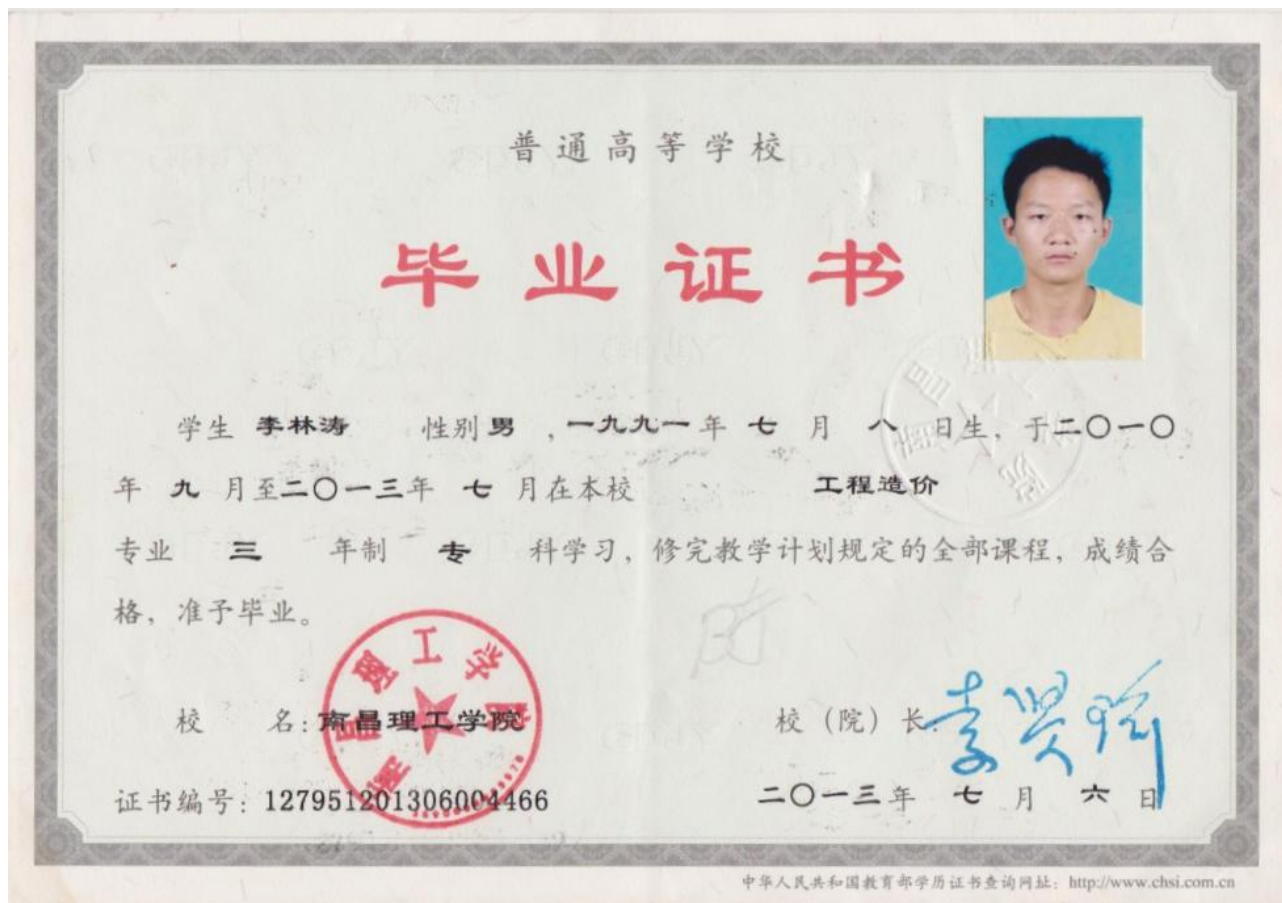 普通高等学校
毕业证书
学生 李林涛 性别 男 ，一九九一年 七 月 八 日生，于二〇一〇
年 九 月至二〇一三年 七 月在本校 工程造价
专业 三 年制 专 科学习，修完教学计划规定的全部课程，成绩合
格，准予毕业。
校 名：南昌理工学院
校（院）长：
证书编号：127951201306004466
二〇一三年 七 月 六 日
中华人民共和国教育部学历证书查询网址：http://www.chsi.com.cn